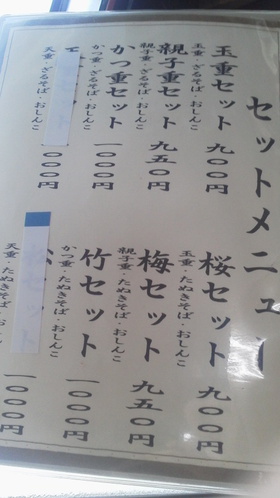 セットメニュー
玉重セット 九〇〇円
玉重・ざるそば・おしんこ
親子重セット 九五〇円
親子重・ざるそば・おしんこ
かつ重セット 一〇〇〇円
かつ重・ざるそば・おしんこ
一〇〇〇円
天重・ざるそば・おしんこ
桜セット 九〇〇円
玉重・たぬきそば・おしんこ
梅セット 九五〇円
親子重・たぬきそば・おしんこ
竹セット 一〇〇〇円
かつ重・たぬきそば・おしんこ
一〇〇〇円
天重・たぬきそば・おしんこ